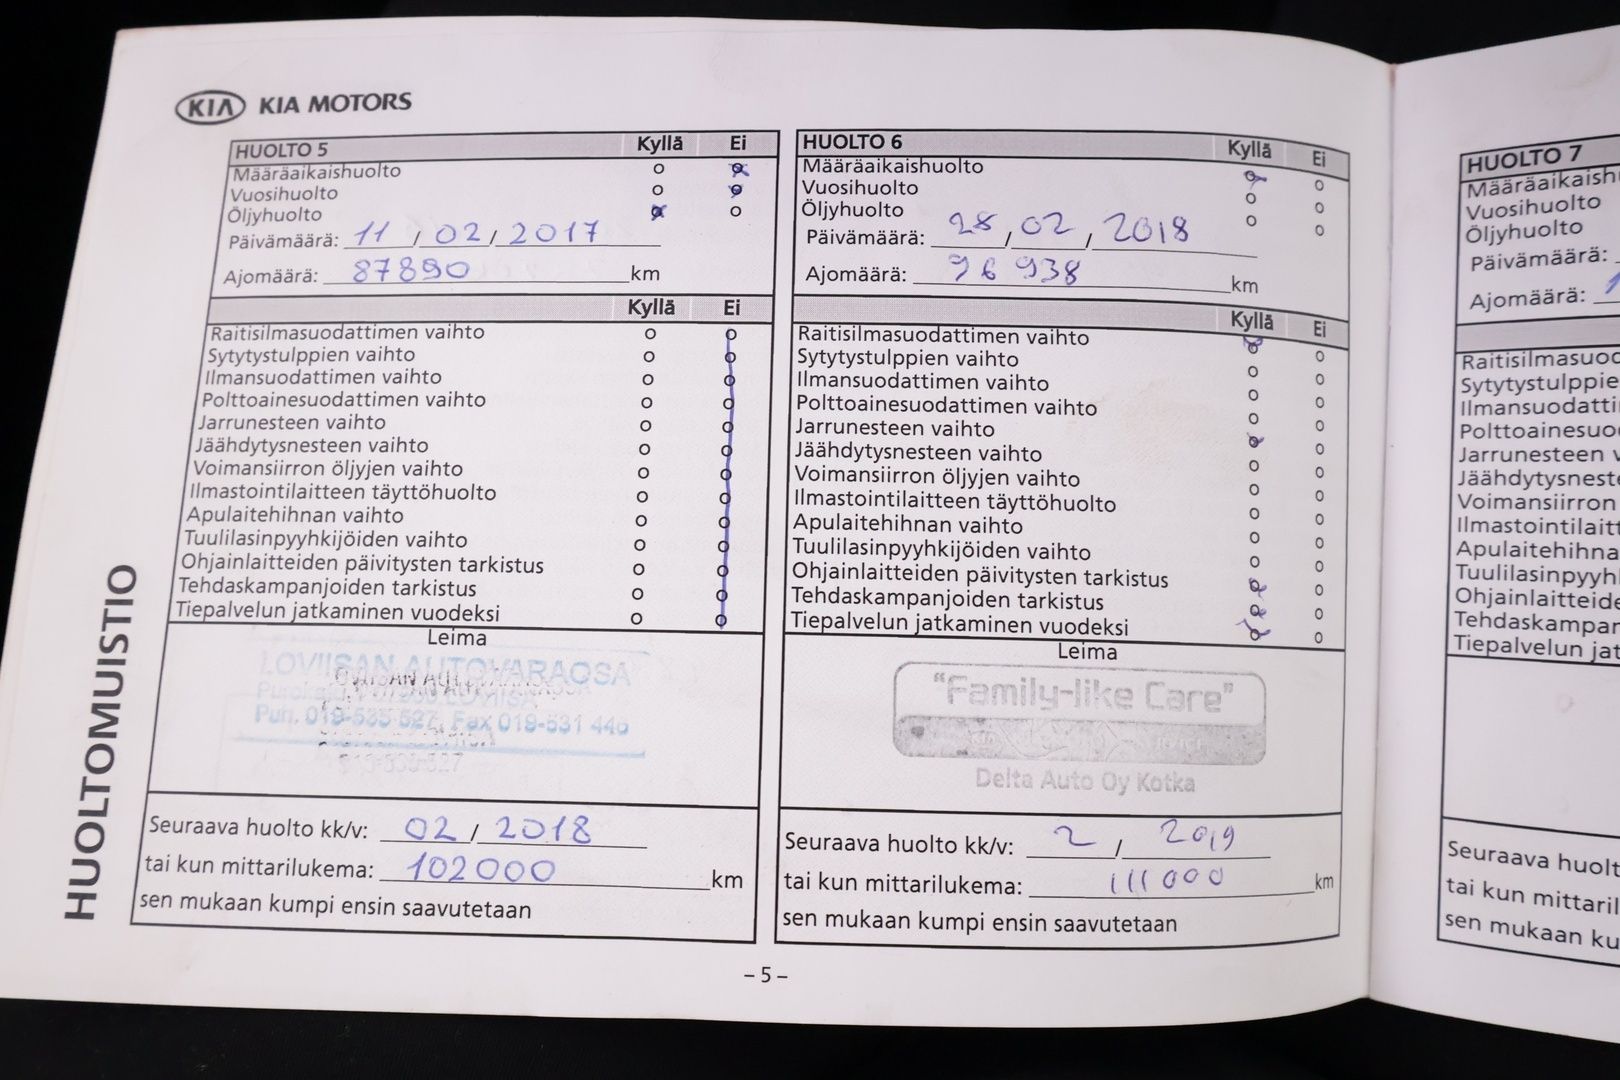 KIA KIA MOTORS
HUOLTOMUISTIO
HUOLTO 5 Kyllä Ei
Määräaikaishuolto o o
Vuosihuolto o o
Öljyhuolto o o
Päivämäärä: 11 / 02 / 2017
Ajomäärä: 87890 km
Kyllä Ei
Raitisilmasuodattimen vaihto o o
Sytytystulppien vaihto o o
Ilmansuodattimen vaihto o o
Polttoainesuodattimen vaihto o o
Jarrunesteen vaihto o o
Jäähdytysnesteen vaihto o o
Voimansiirron öljyjen vaihto o o
Ilmastointilaitteen täyttöhuolto o o
Apulaitehihnan vaihto o o
Tuulilasinpyyhkijöiden vaihto o o
Ohjainlaitteiden päivitysten tarkistus o o
Tehdaskampanjoiden tarkistus o o
Tiepalvelun jatkaminen vuodeksi o o
Leima
LOVIISAN AUTOVARAOSA
LOVIISA
Puh. 019-535 527, Fax 019-531 446
Seuraava huolto kk/v: 02 / 2018
tai kun mittarilukema: 102000 km
sen mukaan kumpi ensin saavutetaan
HUOLTO 6 Kyllä Ei
Määräaikaishuolto o o
Vuosihuolto o o
Öljyhuolto o o
Päivämäärä: 28 / 02 / 2018
Ajomäärä: 96 938 km
Kyllä Ei
Raitisilmasuodattimen vaihto o o
Sytytystulppien vaihto o o
Ilmansuodattimen vaihto o o
Polttoainesuodattimen vaihto o o
Jarrunesteen vaihto o o
Jäähdytysnesteen vaihto o o
Voimansiirron öljyjen vaihto o o
Ilmastointilaitteen täyttöhuolto o o
Apulaitehihnan vaihto o o
Tuulilasinpyyhkijöiden vaihto o o
Ohjainlaitteiden päivitysten tarkistus o o
Tehdaskampanjoiden tarkistus o o
Tiepalvelun jatkaminen vuodeksi o o
Leima
"Family-like Care"
Delta Auto Oy Kotka
Seuraava huolto kk/v: 2 / 2019
tai kun mittarilukema: 111 000 km
sen mukaan kumpi ensin saavutetaan
– 5 –
HUOLTO 7
Määräaikaish
Vuosihuolto
Öljyhuolto
Päivämäärä:
Ajomäärä: 1
Raitisilmasuod
Sytytystulppie
Ilmansuodatti
Polttoainesuo
Jarrunesteen v
Jäähdytysneste
Voimansiirron
Ilmastointilait
Apulaitehihna
Tuulilasinpyyh
Ohjainlaitteide
Tehdaskampan
Tiepalvelun jat
Seuraava huolt
tai kun mittaril
sen mukaan ku